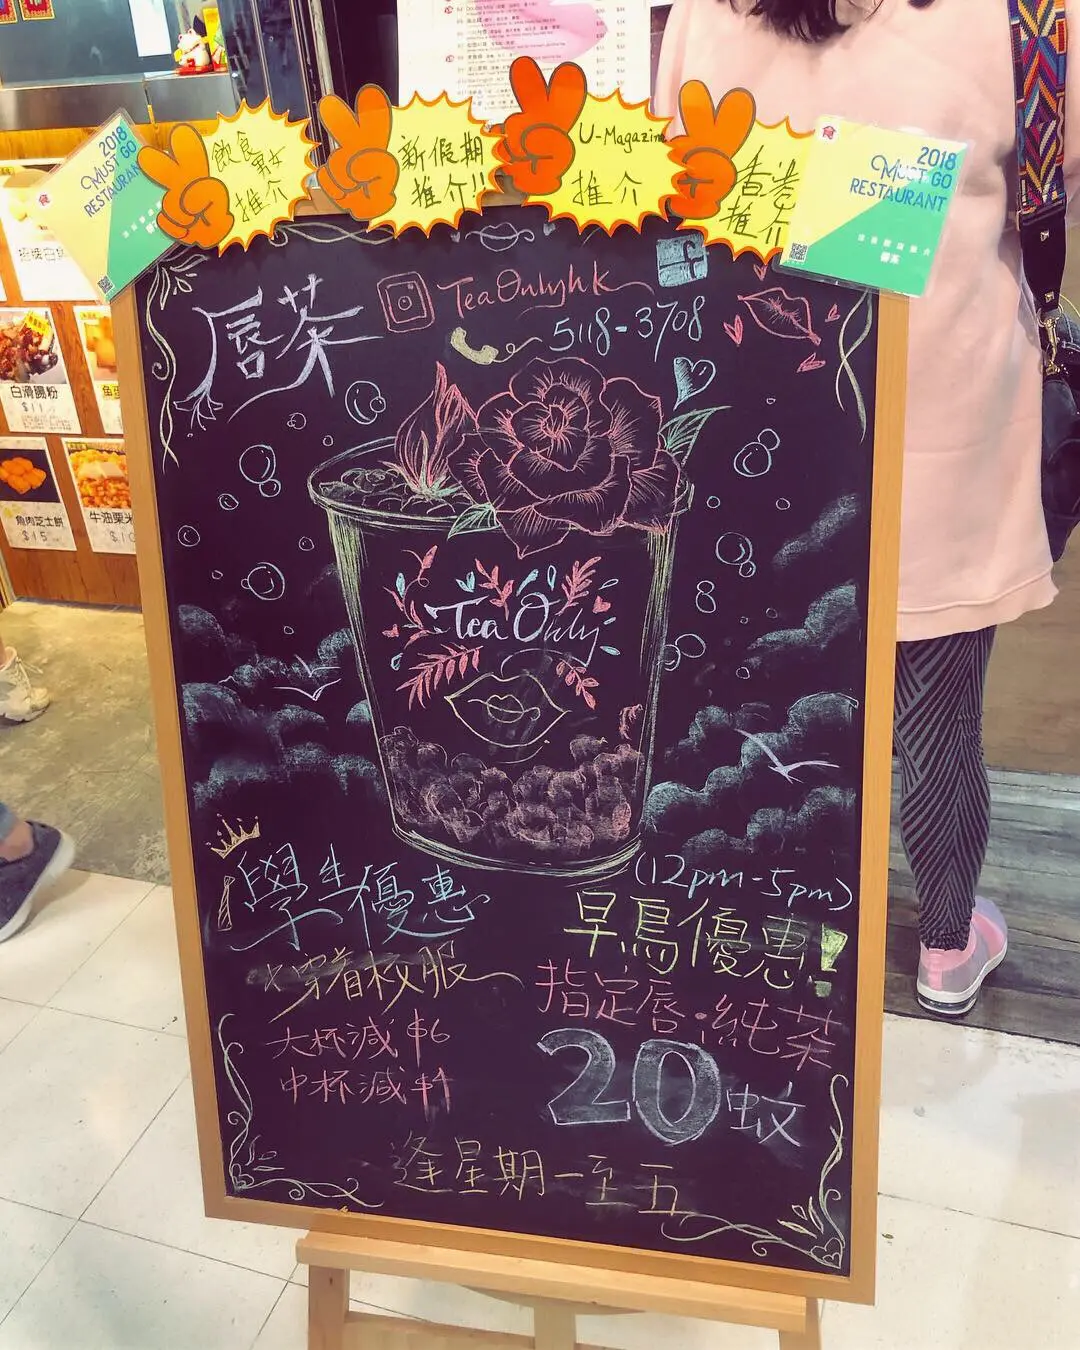 2018
MUST GO
RESTAURANT
飲食
男女
推介
新假期
推介!!
U-Magazine
推介
香港
推介
食
2018
MUST GO
RESTAURANT
唇茶
唇茶
TeaOnlyhk
5118-3708
Tea Only
學生優惠
穿着校服
大杯減$6
中杯減$4
(12pm-5pm)
早鳥優惠!
指定唇·純茶
20蚊
逢星期一至五
白滑腸粉
$11
魚肉芝士餅
$15
牛油粟米